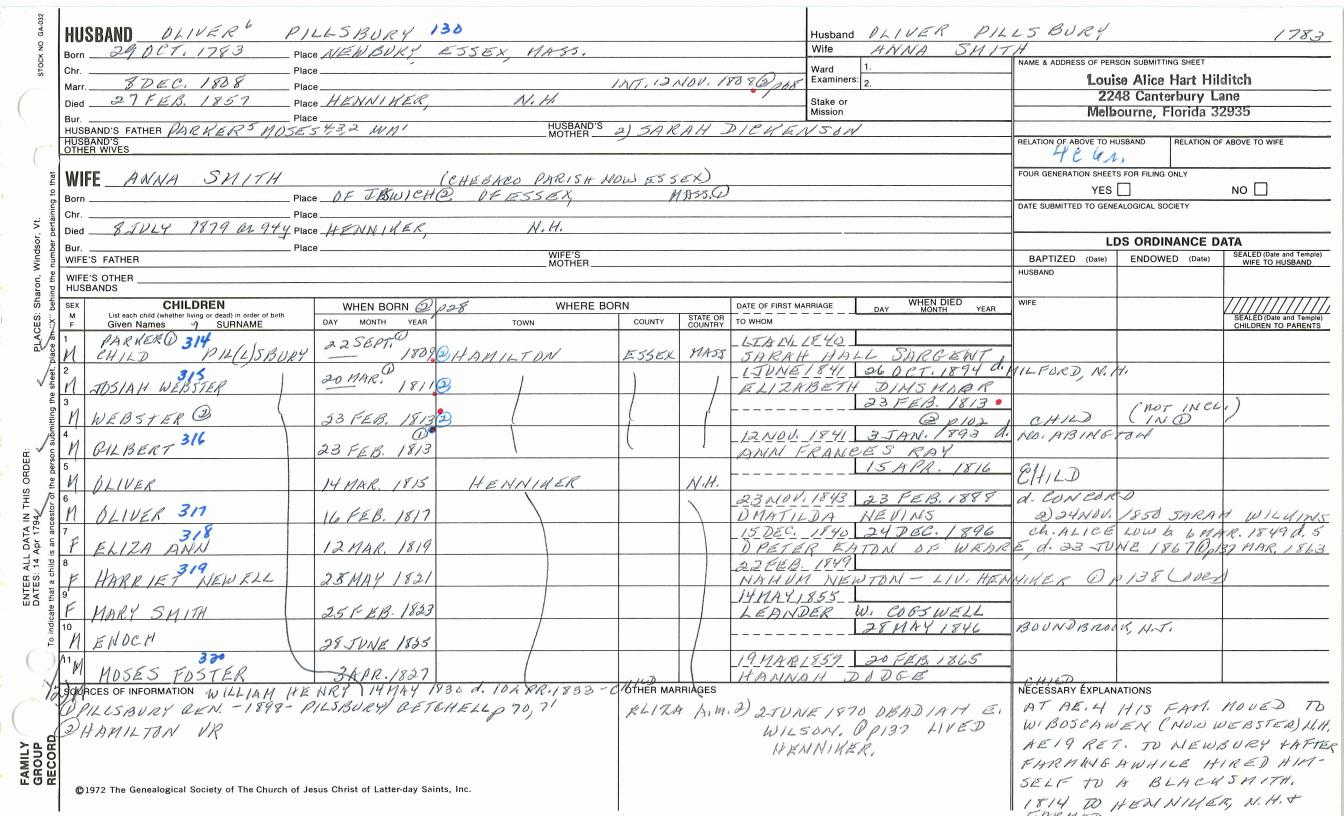 STOCK NO. GA-032
HUSBAND OLIVER⁶ PILLSBURY 130
Born 29 OCT. 1783 Place NEWBURY, ESSEX, MASS.
Chr. Place
Marr. 8 DEC. 1808 Place INT. 12 NOV. 1808 ② p208
Died 27 FEB. 1857 Place HENNIKER, N.H.
Bur. Place
HUSBAND'S FATHER PARKER⁵ MOSES4,3,2 WM¹ HUSBAND'S MOTHER 2) SARAH DICKENSON
HUSBAND'S OTHER WIVES
Husband OLIVER PILLSBURY 1783
Wife ANNA SMITH
Ward Examiners: 1.
2.
Stake or Mission
NAME & ADDRESS OF PERSON SUBMITTING SHEET
Louise Alice Hart Hilditch
2248 Canterbury Lane
Melbourne, Florida 32935
RELATION OF ABOVE TO HUSBAND RELATION OF ABOVE TO WIFE
FOUR GENERATION SHEETS FOR FILING ONLY
YES NO
DATE SUBMITTED TO GENEALOGICAL SOCIETY
WIFE ANNA SMITH (CHEBACO PARISH NOW ESSEX)
Born Place OF IPSWICH ② OF ESSEX, MASS. ①
Chr. Place
Died 8 JULY 1879 Place HENNIKER, N.H.
Bur. Place
WIFE'S FATHER WIFE'S MOTHER
WIFE'S OTHER HUSBANDS
LDS ORDINANCE DATA
BAPTIZED (Date) ENDOWED (Date) SEALED (Date and Temple) WIFE TO HUSBAND
HUSBAND
WIFE
SEALED (Date and Temple) CHILDREN TO PARENTS
SEX M F CHILDREN
List each child (whether living or dead) in order of birth
Given Names SURNAME
WHEN BORN ② p28 WHERE BORN
DAY MONTH YEAR TOWN COUNTY STATE OR COUNTRY
DATE OF FIRST MARRIAGE TO WHOM
WHEN DIED DAY MONTH YEAR
1 M PARKER ① 314 CHILD PIL(L)SBURY 22 SEPT. ① 1809 ② HAMILTON ESSEX MASS 1 JAN. 1840
SARAH HALL SARGENT
2 M 315 JOSIAH WEBSTER 20 MAR. ① 1811 ② 1 JUNE 1841 26 OCT. 1894 d. MILFORD, N.H.
ELIZABETH DINSMOOR
3 M WEBSTER ② 23 FEB. 1813 ② 23 FEB. 1813
② p102 CHILD (NOT INCL. IN ①)
4 M GILBERT 316 23 FEB. 1813 ① 12 NOV. 1841 3 JAN. 1893 d. NO. ABINGTON
ANN FRANCES RAY
5 M OLIVER 14 MAR. 1815 HENNIKER N.H. 15 APR. 1816 CHILD
6 M OLIVER 317 16 FEB. 1817 23 NOV. 1843 23 FEB. 1888 d. CONCORD
1) MATILDA NEVINS 2) 24 NOV. 1850 SARAH WILKINS
7 F 318 ELIZA ANN 12 MAR. 1819 15 DEC. 1840 24 DEC. 1896 ch. ALICE LOW b. 6 MAR. 1849 d. 5 MAR. 1863
1) PETER EATON OF WEARE, d. 23 JUNE 1867 ① p137
8 F 319 HARRIET NEWELL 28 MAY 1821 22 FEB. 1849
NAHUM NEWTON - LIV. HENNIKER ① p138
9 F MARY SMITH 25 FEB. 1823 14 MAY 1855
LEANDER W. COGSWELL
10 M ENOCH 28 JUNE 1825 28 MAY 1846 BOUNDBROOK, N.J.
11 M 320 MOSES FOSTER 3 APR. 1827 19 MAR 1857 20 FEB 1865
HANNAH DODGE
SOURCES OF INFORMATION WILLIAM HENRY 14 MAY 1830 d. 10 APR. 1833 - CHILD
① PILLSBURY GEN. - 1898 - PILLSBURY & GETCHELL p 70, 71
② HAMILTON VR
OTHER MARRIAGES
ELIZA A. m. 2) 2 JUNE 1870 OBADIAH E.
WILSON. ① p137 LIVED
HENNIKER.
NECESSARY EXPLANATIONS
AT AE. 4 HIS FAM. MOVED TO
W. BOSCAWEN (NOW WEBSTER) N.H.
AE 19 RET. TO NEWBURY & AFTER
FARMING AWHILE HIRED HIM-
SELF TO A BLACKSMITH.
1814 TO HENNIKER, N.H. &
©1972 The Genealogical Society of The Church of Jesus Christ of Latter-day Saints, Inc.
FAMILY GROUP RECORD
ENTER ALL DATA IN THIS ORDER:
DATES: 14 Apr 1794
PLACES: Sharon, Windsor, Vt.
To indicate that a child is an ancestor of the person submitting the sheet, place an "X" behind the number pertaining to that